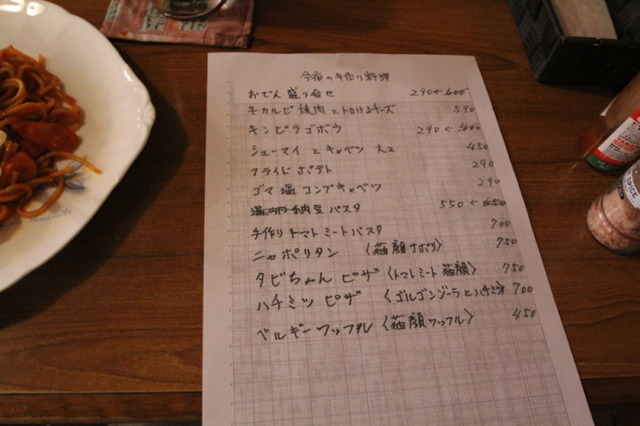 今夜の手作り料理
おでん 盛り合せ 290 ← 600
牛カルビ焼肉ととろけるチーズ 590
キンピラゴボウ 290 ← 400
シューマイとキャベツ 大2 450
フライドポテト 290
ゴマ塩コンブキャベツ 290
納豆パスタ 550 ← 650
手作りトマトミートパスタ 700
ニャポリタン 〈猫顔ナポリ〉 750
タビちゃんピザ 〈トマトミート猫顔〉 750
ハチミツピザ 〈ゴルゴンゾーラとハチミツ 700
ベルギーワッフル 〈猫顔ワッフル〉 450